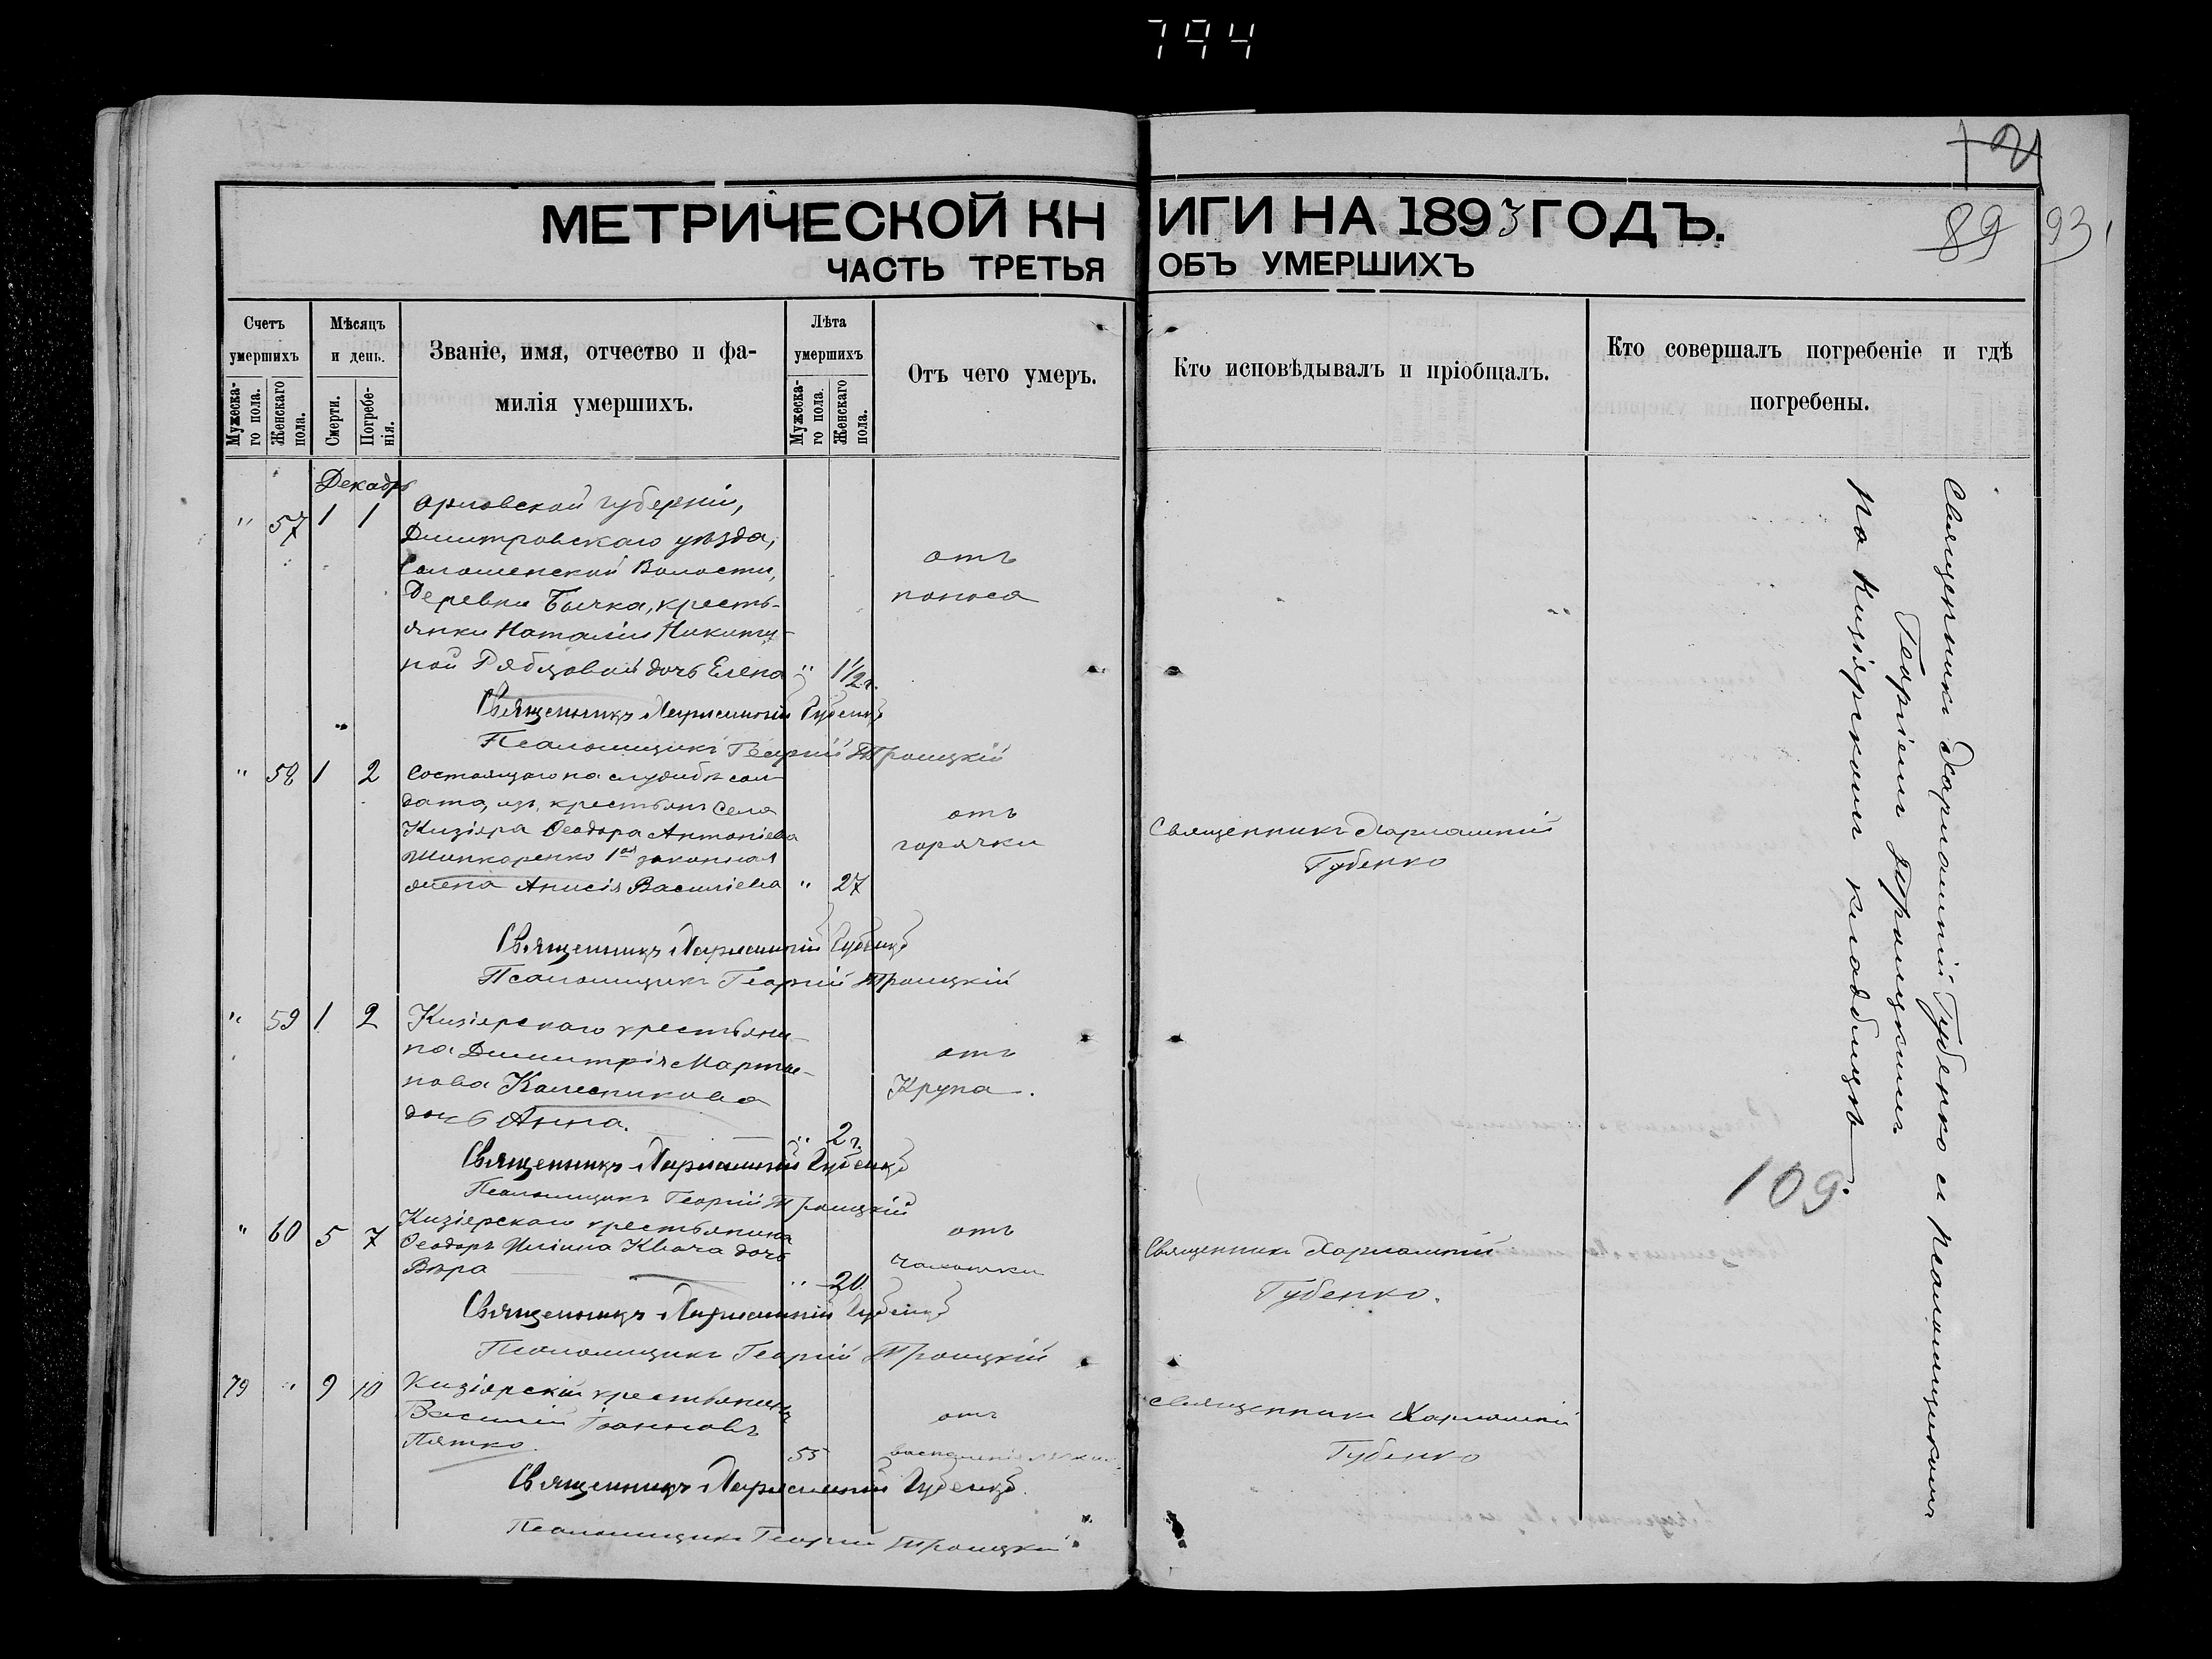 794
21
МЕТРИЧЕСКОЙ КНИГИ НА 1893 ГОДЪ.
89 93
ЧАСТЬ ТРЕТЬЯ ОБЪ УМЕРШИХЪ
Счетъ умершихъ
Мужеска-го пола.
Женскаго пола.
Мѣсяцъ и день.
Смерти.
Погребе-нія.
Званіе, имя, отчество и фа-
милія умершихъ.
Лѣта умершихъ
Мужеска-го пола.
Женскаго пола.
Отъ чего умеръ.
Кто исповѣдывалъ и пріобщалъ.
Кто совершалъ погребеніе и гдѣ
погребены.
Декабрь
" 57 1 1 Орловской губерніи,
Дмитровскаго уѣзда,
Волости,
Деревни Бычка, кресть-
янки Наталіи Никити-
ной Рябцовой дочь Елена " 1 1/2 г.
отъ
поноса
Священникъ Харлампій Губенко
Псаломщикъ Георгій Троицкій
" 58 1 2 Состоящаго на службѣ сол-
дата, изъ крестьянъ села
Кизіяра Ѳеодора Антоніева
Шинкаренко 1ая законная
жена Анисія Василіева " 27
отъ
горячки
Священникъ Харлампій
Губенко
Священникъ Харлампій Губенко
Псаломщикъ Георгій Троицкій
" 59 1 2 Кизіярскаго крестьяни-
на Димитрія Марты-
нова Колесникова
дочь Анна. " 2 г.
отъ
Крупа.
Священникъ Харлампій Губенко
Псаломщикъ Георгій Троицкій
" 60 5 7 Кизіярскаго крестьянина
Ѳеодора Илліина Квача дочь
Вѣра " 20
отъ
чахотки
Священникъ Харлампій
Губенко.
Священникъ Харлампій Губенко
Псаломщикъ Георгій Троицкій
79 " 9 10 Кизіярскій крестьянинъ
Василій Іоанновъ
Пятко. 55
отъ
воспаленія
Священникъ Харлампій
Губенко
Священникъ Харлампій Губенко.
Псаломщикъ Георгій Троицкій
Священникъ Харлампій Губенко и псаломщикомъ
Георгіемъ Троицкимъ
на Кизіярскомъ кладбищѣ
109.